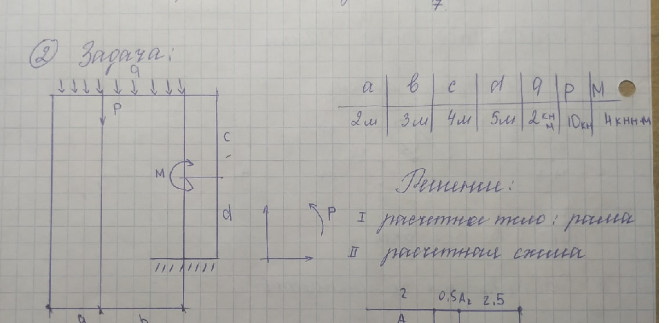 7
② Задача:
q
P
M
c
d
a b c d q P M
2м 3м 4м 5м 2 кн/м 10кн 4 кннм
Решение:
P
I расчетное тело: рама
II расчетная схима
2 0,5 A₂ 2,5
a b A